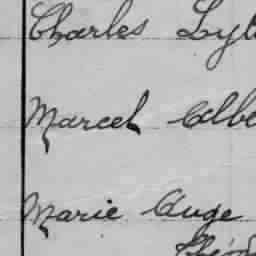 Charles Lyl
Marcel Albe
Marie Auge